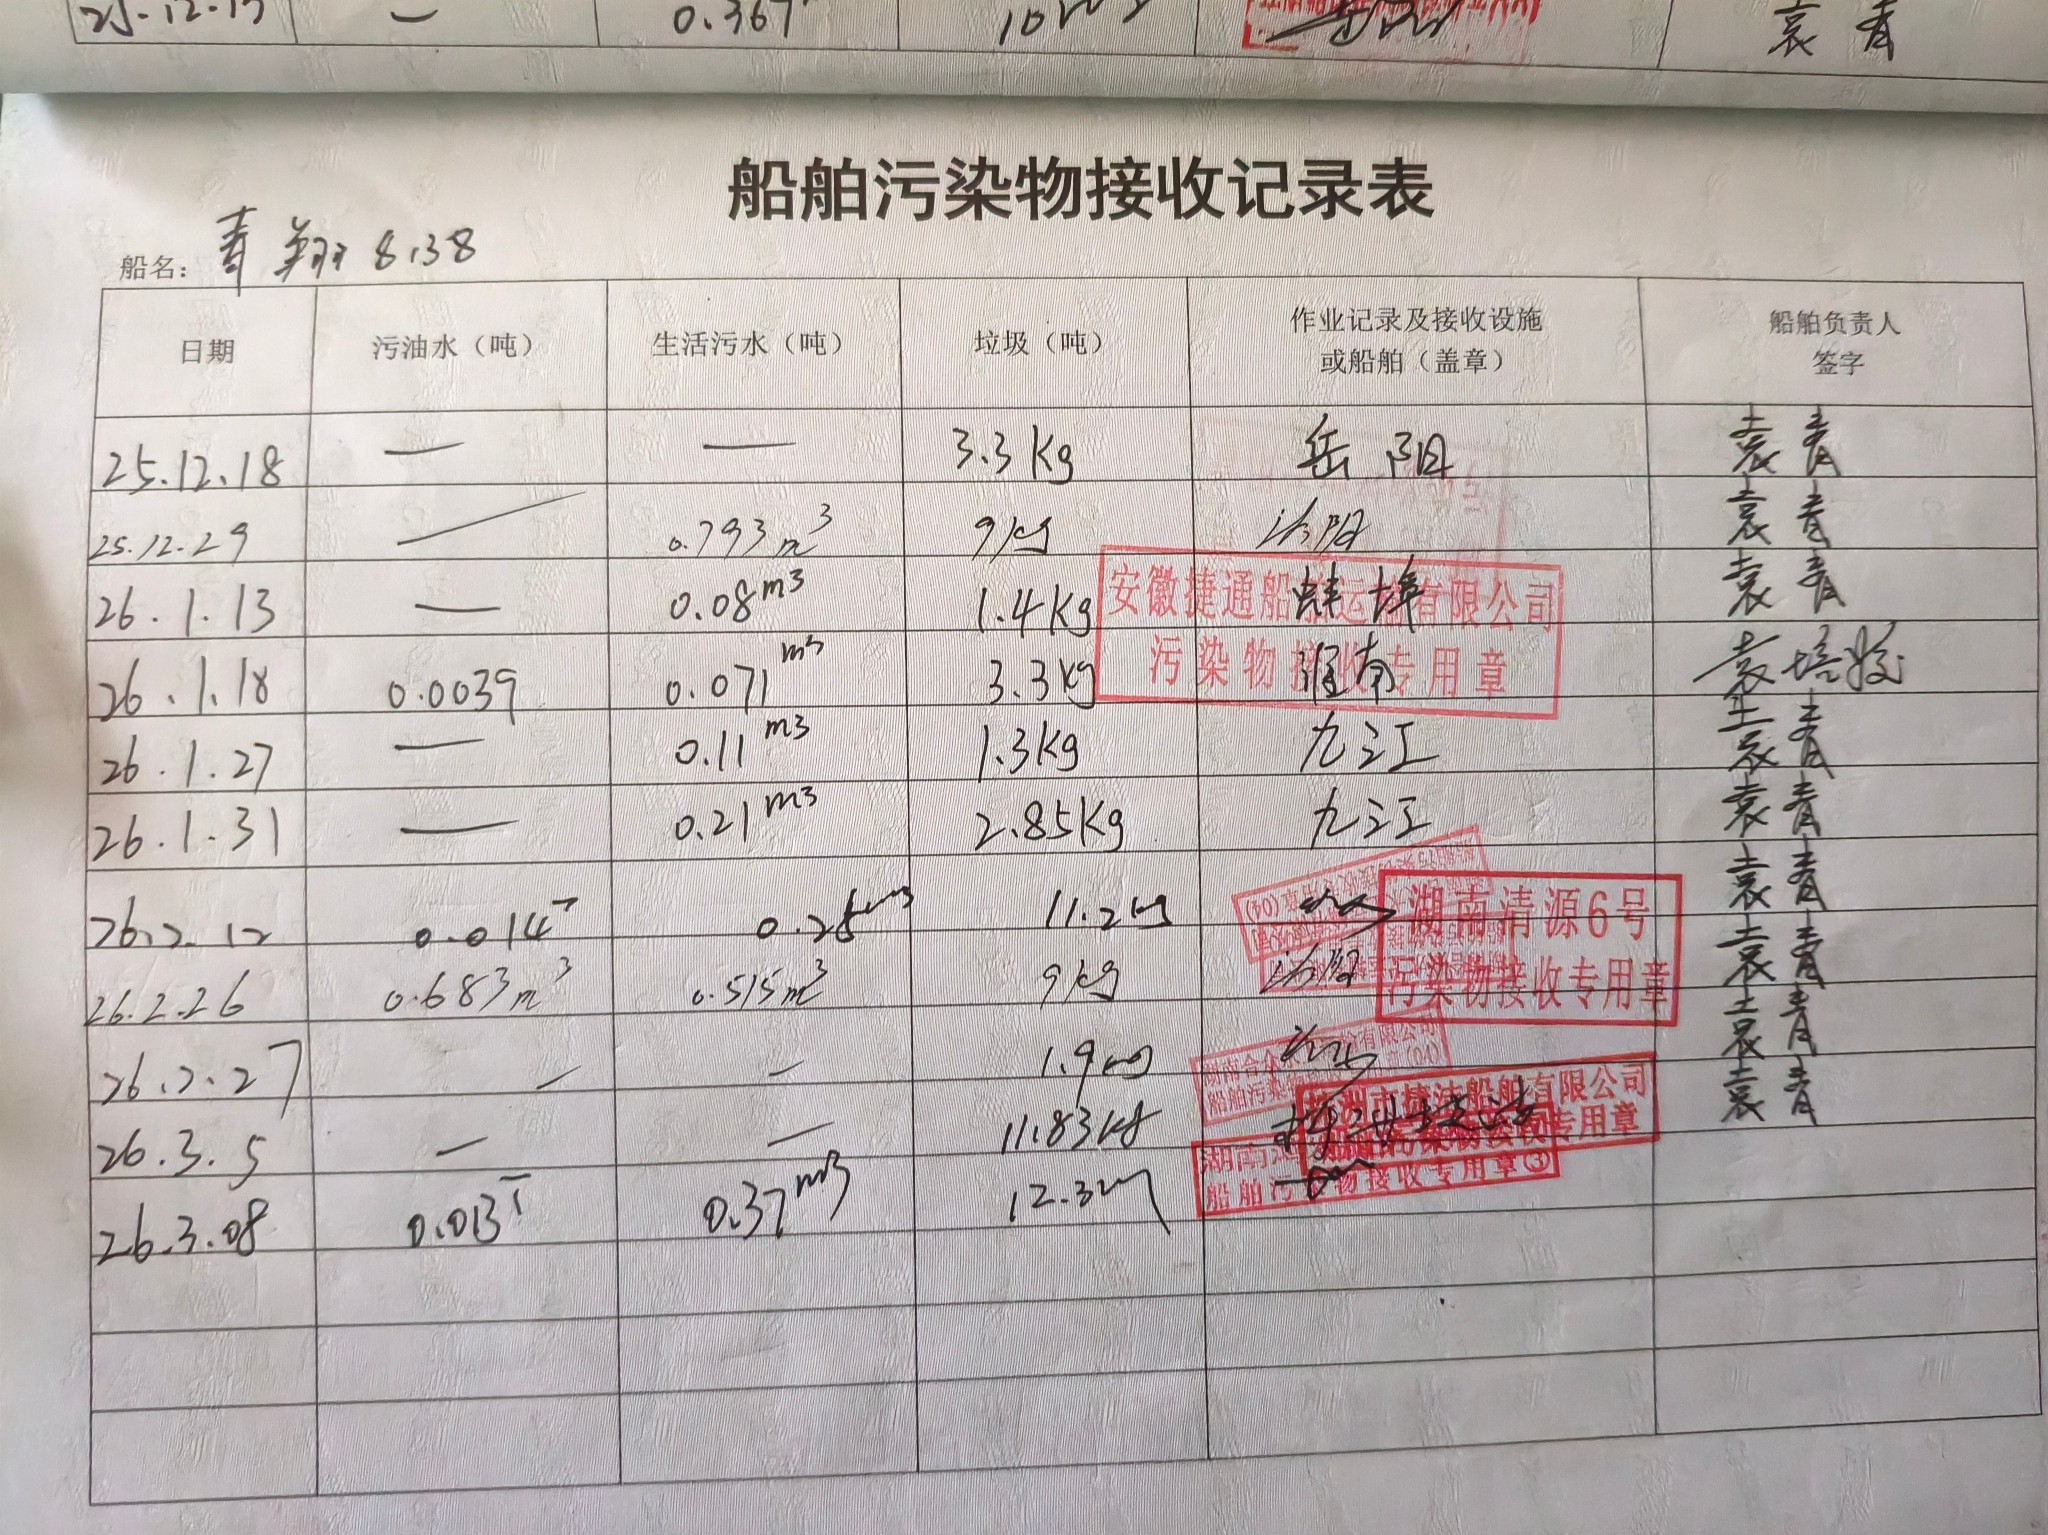 25.12.15 — 0.367 袁青
船舶污染物接收记录表
船名: 青翔8138
日期 污油水（吨） 生活污水（吨） 垃圾（吨） 作业记录及接收设施或船舶（盖章） 船舶负责人签字
25.12.18 — — 3.3Kg 岳阳 袁青
25.12.29 — 0.793m³ 9kg 袁青
26.1.13 — 0.08m3 1.4Kg 蚌埠 袁青
安徽捷通船舶运输有限公司
污染物接收专用章
26.1.18 0.0039 0.071m3 3.3Kg 淮南
26.1.27 — 0.11m3 1.3Kg 九江 袁青
26.1.31 — 0.21m3 2.85Kg 九江 袁青
26.2.12 0.014T 11.2kg 袁青
湖南清源6号
污染物接收专用章
26.2.26 0.683m³ 0.515m³ 9kg 袁青
26.2.27 — — 1.9kg 袁青
26.3.5 — — 11.83kg 袁青
有限公司
专用章
26.3.08 0.013T 0.37m3
船舶污染物接收专用章③